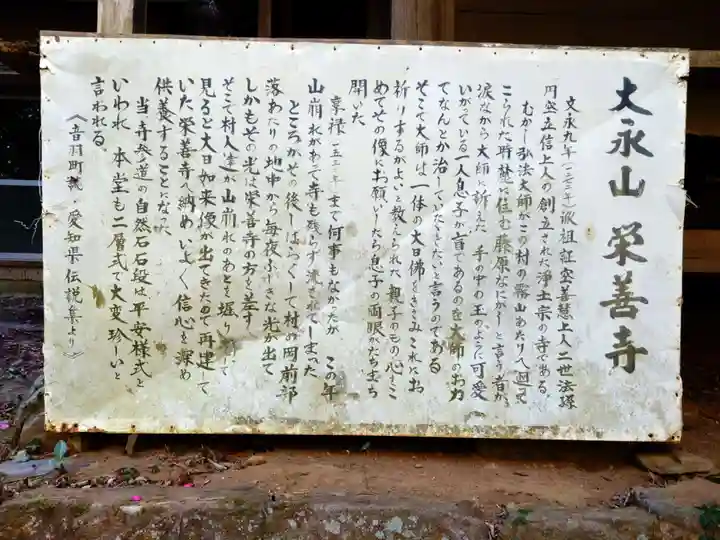 大永山 栄善寺
文永九年(一二七二年)派祖証空善慧上人二世法縁
円空立信上人の創立された浄土宗の寺である
むかし弘法大師がこの村の霧山あたりへ廻って
こられた時麓に住む藤原なにがしと言う者が
涙ながら大師に訴えた 手の中の玉のように可愛
いがっている一人息子が盲であるのを大師のお力
でなんとか治していたゞきたいと言うのである
そこで大師は一体の大日佛をきざみこれにお
祈りするがよいと教えられた 親子のもの心をこ
めてその像にお願いしたら息子の両眼がたちまち
開いた
享禄(一五三二年)まで何事もなかったが この年
山崩れがあって寺も残らず流されてしまった
ところがその後しばらくして村の岡前部
落あたりの地中から毎夜ふしぎな光が出て
しかもその光は栄善寺の方を差す
そこで村人達が山崩れのあとを堀り 
見ると大日如来像が出てきたので再建して
いた栄善寺へ納めいよいよ信心を深め
供養することになった
当寺参道の自然石石段は平安様式と
いわれ 本堂も二層式で大変珍しいと
言われる。
(音羽町誌・愛知県伝説集より)